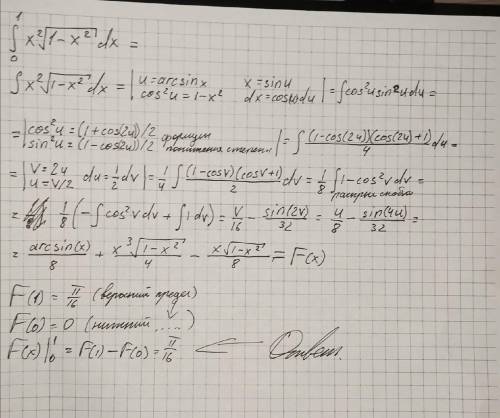 ∫₀¹ x²√(1-x²) dx =
∫ x²√(1-x²) dx = | u=arcsinx x=sinu cos²u=1-x² dx=cos(u)du | = ∫cos²u sin²u du =
= | cos²u=(1+cos(2u))/2 sin²u=(1-cos(2u))/2 формулы понижения степени | = ∫ (1-cos(2u))(cos(2u)+1)/4 du =
= | V=2u u=V/2 du=1/2 dV | = 1/4 ∫ (1-cosV)(cosV+1)/2 dV = 1/8 ∫ 1-cos²V dV = раскрыв скобки
= 1/8 (-∫cos²V dV + ∫1 dV) = V/16 - sin(2V)/32 = u/8 - sin(4u)/32 =
= arcsin(x)/8 + x³√(1-x²)/4 - x√(1-x²)/8 = F(x)
F(1) = π/16 (верхний предел)
F(0) = 0 (нижний ....)
F(x)|₀¹ = F(1) - F(0) = π/16 ← Ответ.